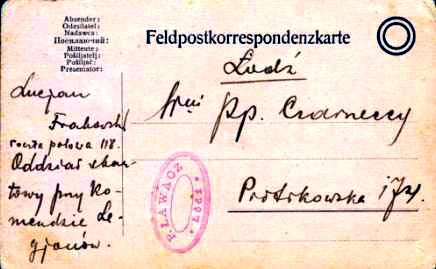 Absender:
Odesílatel:
Nadawca:
Посилаючий:
Mittente:
Pošiljatelj:
Pošiljač:
Presentator:
Feldpostkorrespondenzkarte
Łodź
Pp. Czarneccy
Piotrkowska 174.
Lucjan
poczta polowa 118.
Oddział
towy przy Ko-
mendzie Le-
gjonów.
P. ŁAWACZ
ŁÓDŹ